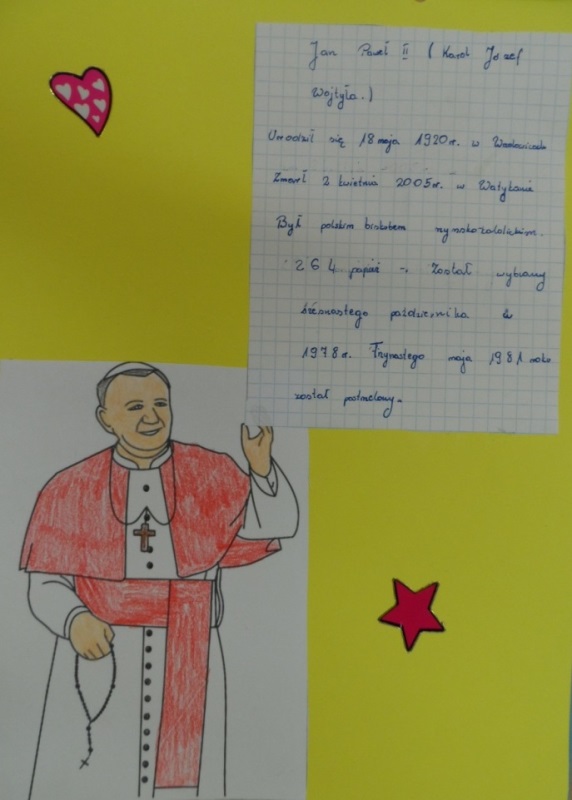 Jan Paweł II (Karol Józef
Wojtyła.)
Urodził się 18 maja 1920r. w Wadowicach
Zmarł 2 kwietnia 2005r. w Watykanie
Był polskim biskupem rzymskokatolickim.
264 papież → Został wybrany
października
1978r. Trzynastego maja 1981 roku
został postrzelony.